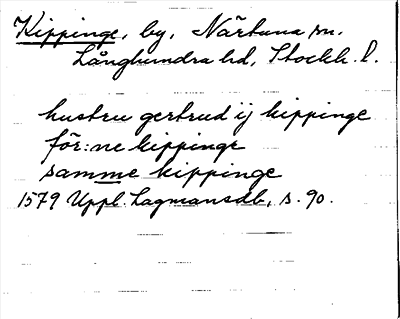 Kippinge, by, Närtuna sn.
Långhundra hd, Stockh. l.
hustru gertrud ij kippinge
för:ne kippinge
samme kippinge
1579 Uppl. Lagmansdb, s. 90.